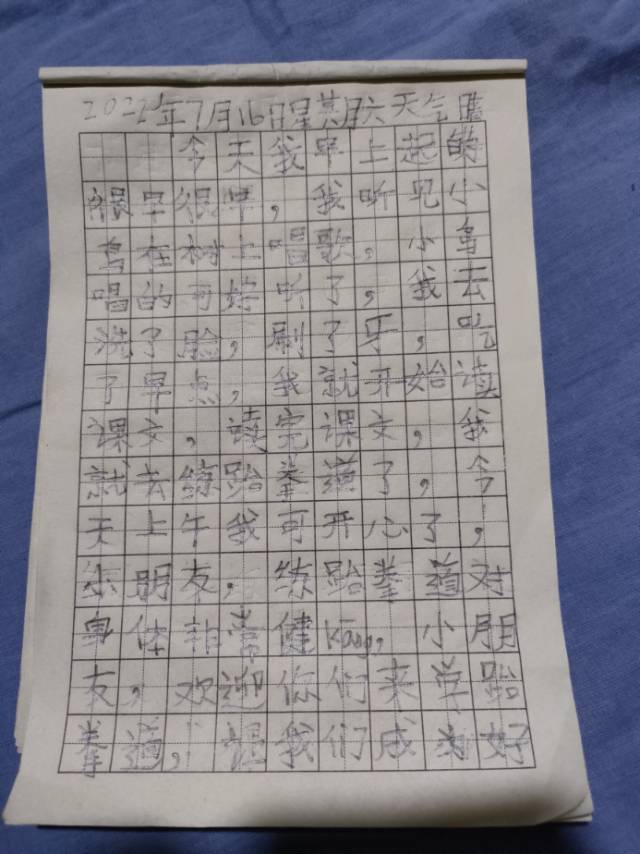 2022年7月16日星期六天气晴
今天我早上起的
很早很早,我听见小
鸟在树上唱歌,小鸟
唱的可好听了,我去
洗了脸,刷了牙,吃
了早点,我就开始读
课文,读完课文,我
就去练跆拳道了,今
天上午我可开心了,
小朋友,练跆拳道对
身体非常健Kang,小朋
友,欢迎你们来学跆
拳道,让我们成为好